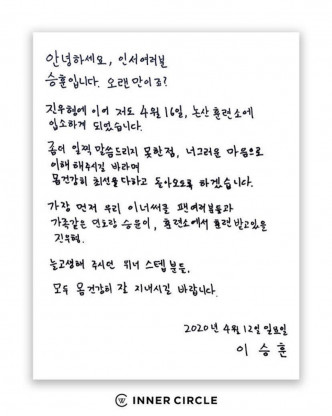 안녕하세요, 인서여러분
승훈입니다. 오랜만이죠?
진우형에 이어 저도 4월 16일, 논산 훈련소에
입소하게 되었습니다.
좀더 일찍 말씀드리지 못한점, 너그러운 마음으로
이해해주시길 바라며
몸건강히 최선을 다하고 돌아오도록 하겠습니다.
가장 먼저 우리 이너써클 팬여러분들과
가족같은 민호랑 승윤이, 훈련소에서 훈련 받고있을
진우형.
늘고생해 주시던 위너 스텝분들.
모두 몸건강히 잘 지내시길 바랍니다.
2020년 4월 12일 일요일
이 승 훈
INNER CIRCLE